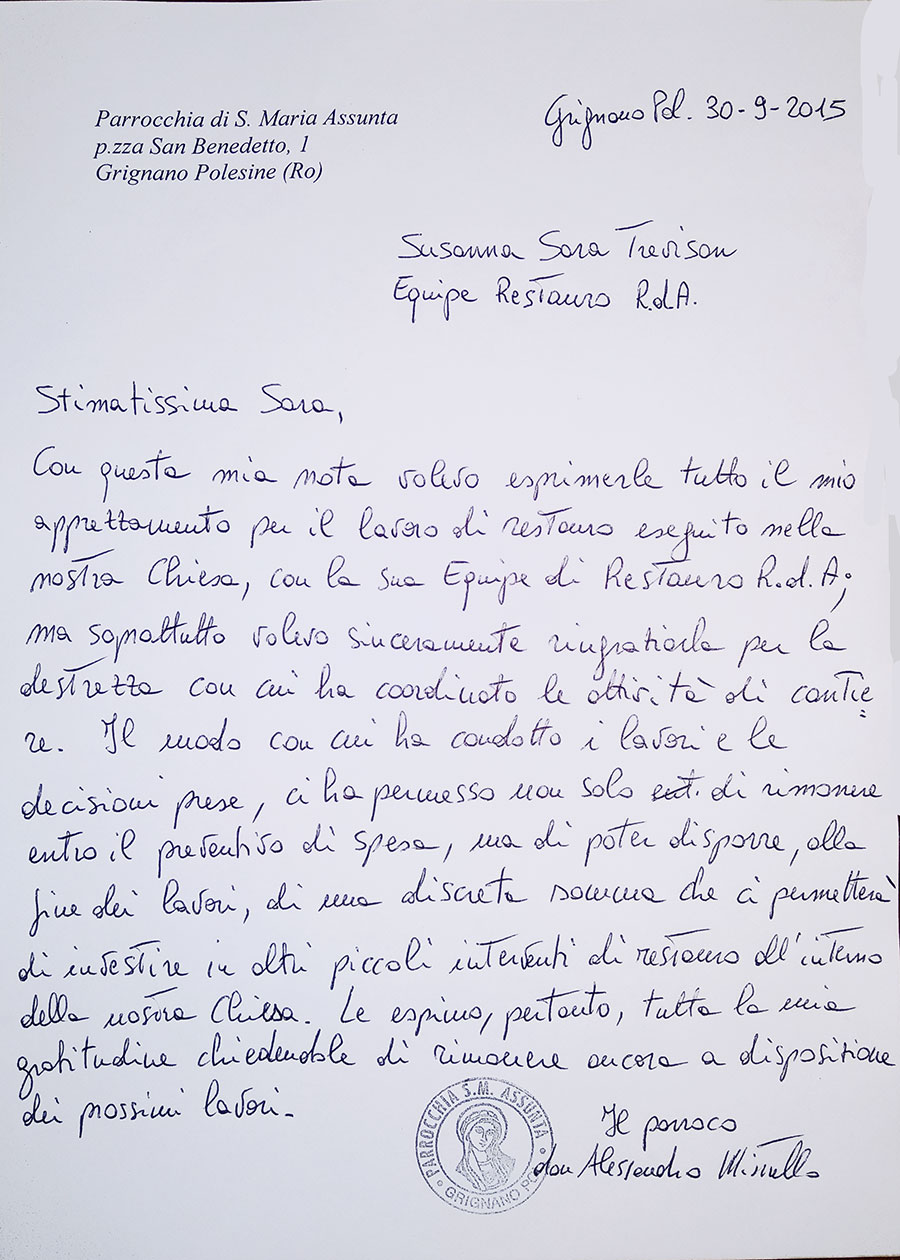 Parrocchia di S. Maria Assunta
p.zza San Benedetto, 1
Grignano Polesine (Ro)
Grignano Pol. 30-9-2015
Susanna Sara Trevisan
Equipe Restauro R.d.A.
Stimatissima Sara,
Con questa mia nota volevo esprimerle tutto il mio
apprezzamento per il lavoro di restauro eseguito nella
nostra Chiesa, con la sua Equipe di Restauro R.d.A;
ma soprattutto volevo sinceramente ringraziarla per la
destrezza con cui ha coordinato le attività di cantie=
re. Il modo con cui ha condotto i lavori e le
decisioni prese, ci ha permesso non solo ent. di rimanere
entro il preventivo di spesa, ma di poter disporre, alla
fine dei lavori, di una discreta somma che ci permetterà
di investire in altri piccoli interventi di restauro all'interno
della nostra Chiesa. Le esprimo, pertanto, tutta la mia
gratitudine chiedendole di rimanere ancora a disposizione
dei prossimi lavori.
PARROCCHIA S.M. ASSUNTA
GRIGNANO PO
Il parroco
don Alessandro